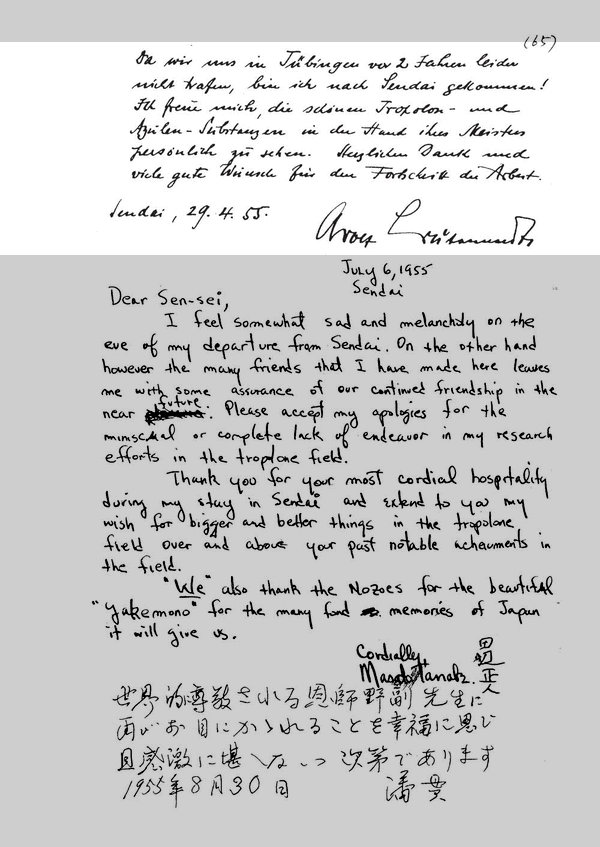 (65)
Da wir uns in Tübingen vor 2 Jahren leider
nicht trafen, bin ich nach Sendai gekommen!
Ich freue mich, die schönen Tropolon- und
Azulen-Substanzen in der Hand ihres Meisters
persönlich zu sehen. Herzlichen Dank und
viele gute Wünsche für den Fortschritt der Arbeit.
Sendai, 29.4.55.
July 6, 1955
Sendai
Dear Sen-sei,
I feel somewhat sad and melancholy on the
eve of my departure from Sendai. On the other hand
however the many friends that I have made here leaves
me with some assurance of our continued friendship in the
near future. Please accept my apologies for the
or complete lack of endeavor in my research
efforts in the tropolone field.
Thank you for your most cordial hospitality
during my stay in Sendai and extend to you my
wish for bigger and better things in the tropolone
field over and above your past notable in
the field.
"We" also thank the Nozoes for the beautiful
"Yakemono" for the many fond memories of Japan
it will give us.
Cordially,
Masato Tanabe
田辺正人
世界的尊敬される恩師野副先生に
再びお目にかゝれることを幸福に思ひ
且感激に堪へない次第であります
1955年8月30日 潘貫